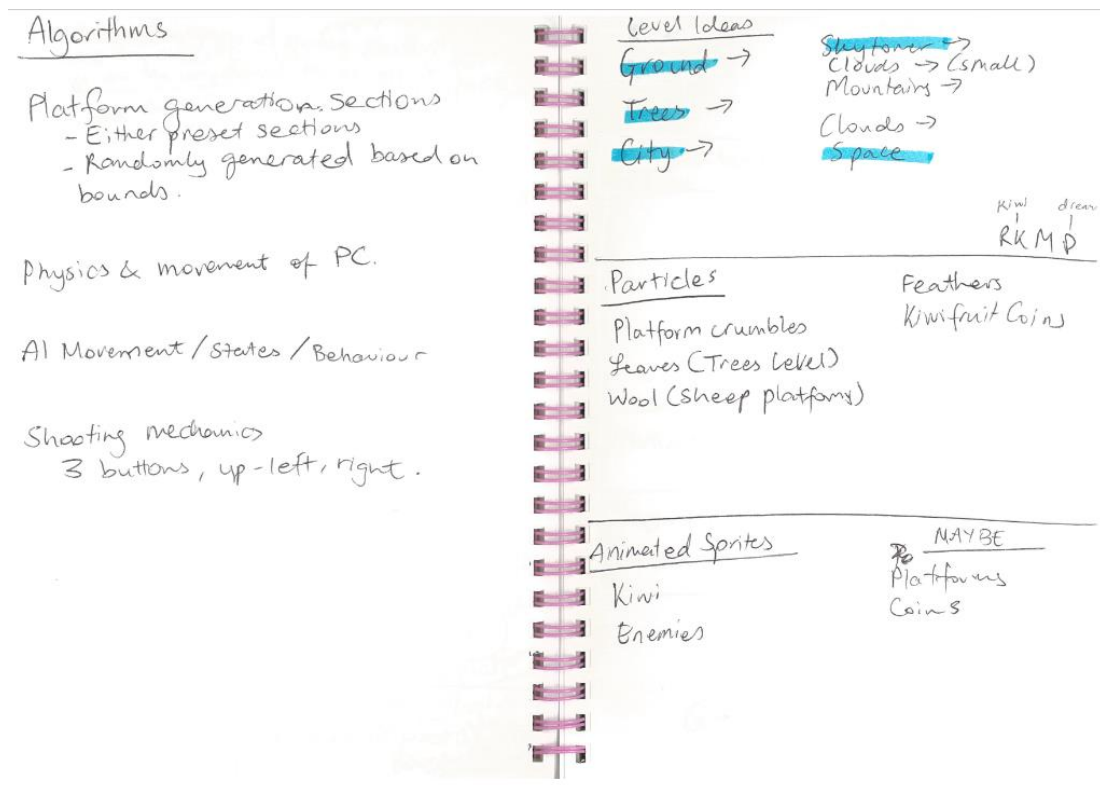 Algorithms
Platform generation. Sections
- Either preset sections
- Randomly generated based on
bounds.
Physics & movement of PC.
AI Movement/States/Behaviour
Shooting mechanics
3 buttons, up-left, right.
Level Ideas
Ground →
Trees →
City →
Skytower →
Clouds → (small)
Mountains →
Clouds →
Space
Kiwi dream
RKMD
Particles
Platform crumbles
Leaves (Trees Level)
Wool (Sheep platforms)
Feathers
Kiwifruit Coins
Animated Sprites
Kiwi
Enemies
MAYBE
Platforms
Coins